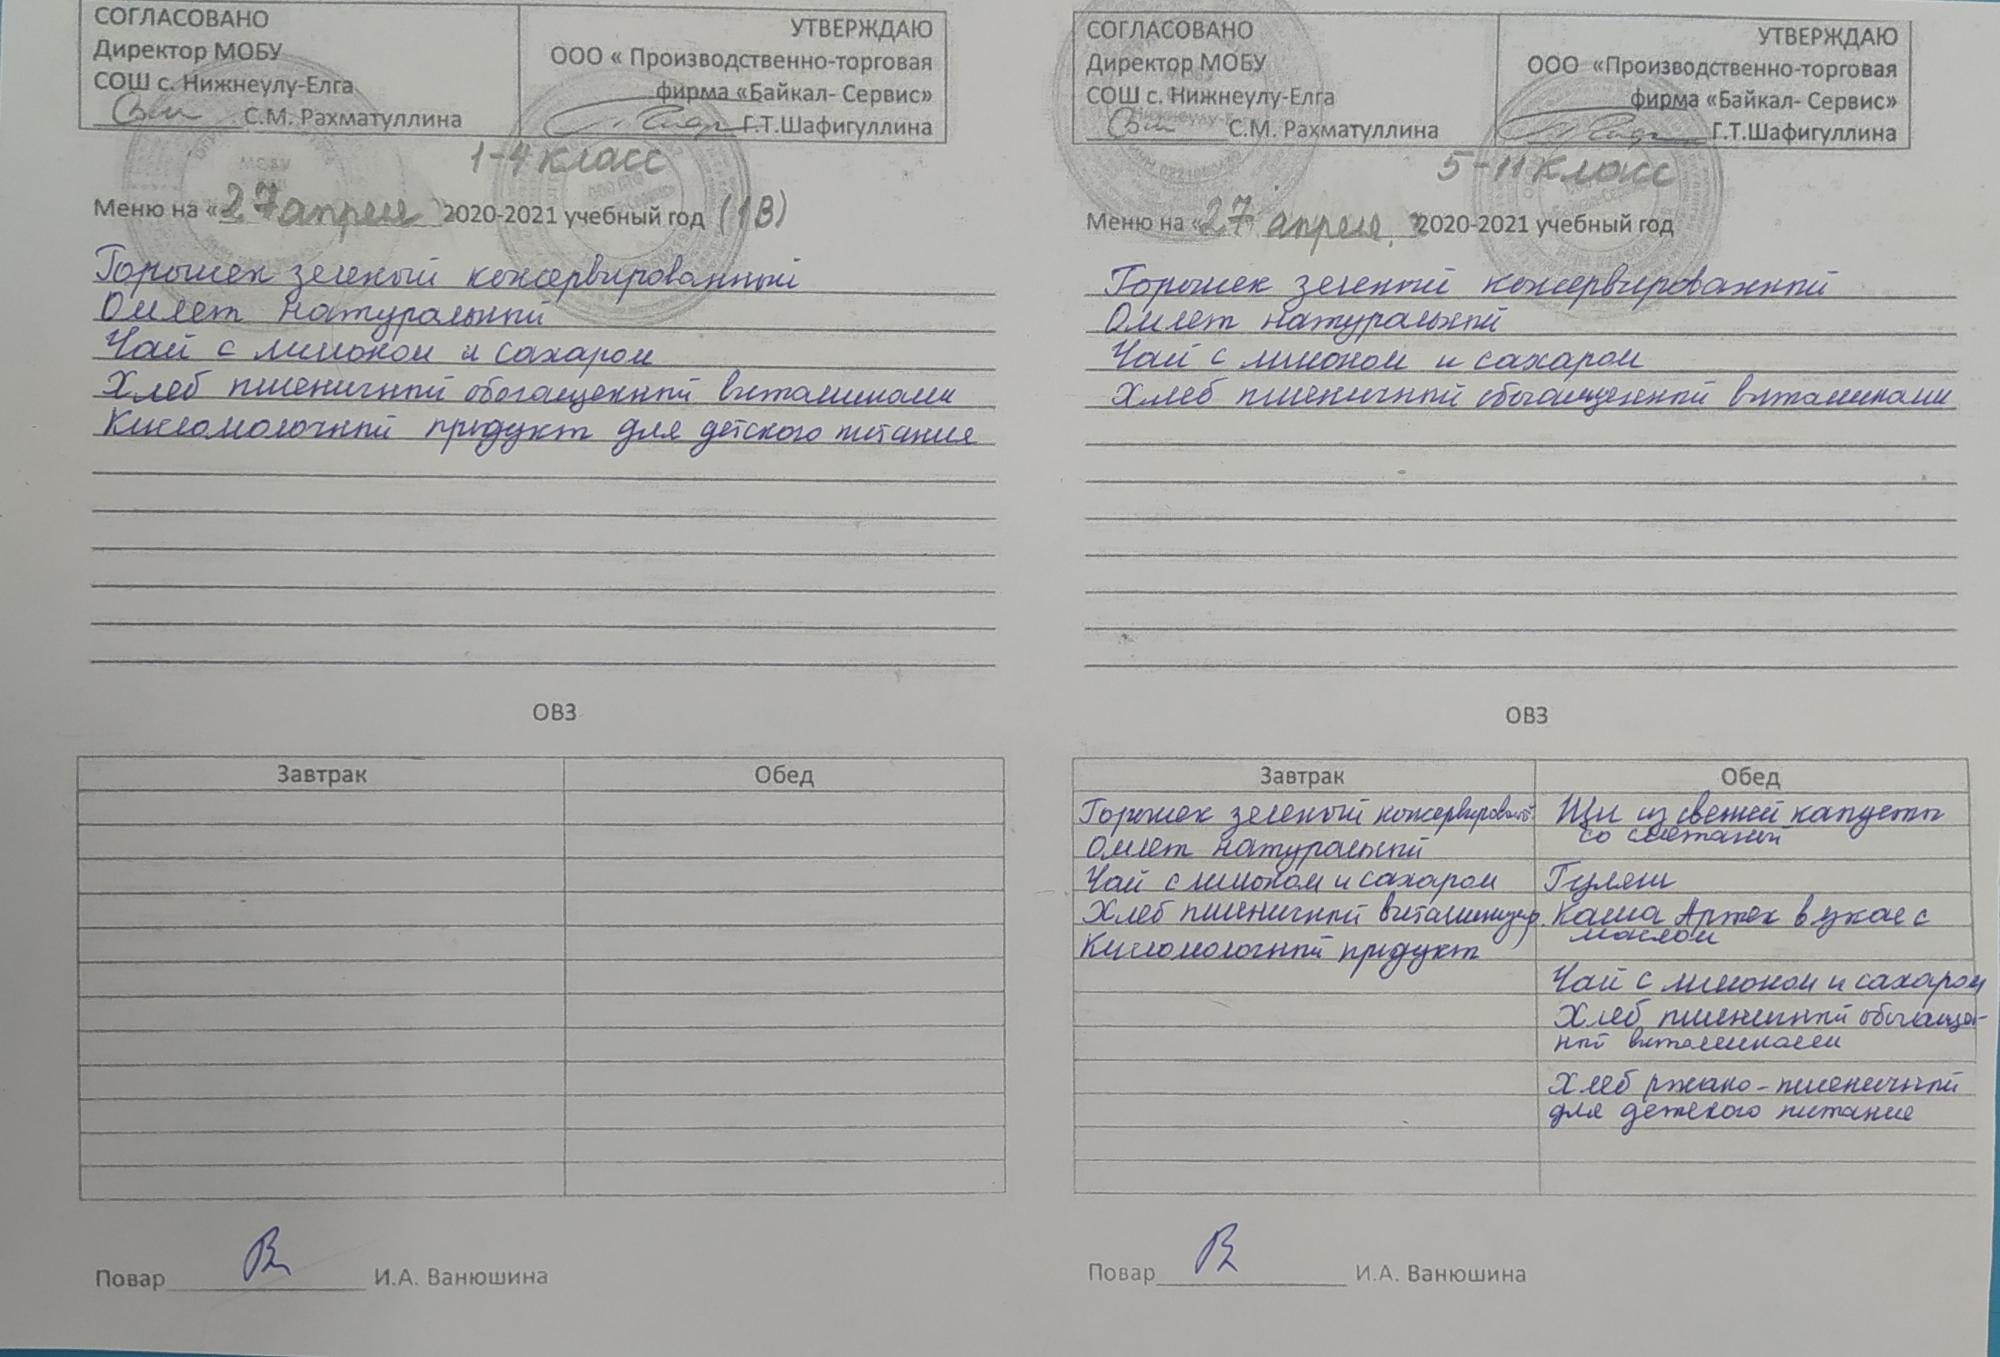 СОГЛАСОВАНО
Директор МОБУ
СОШ с. Нижнеулу-Елга
С.М. Рахматуллина
УТВЕРЖДАЮ
ООО « Производственно-торговая
фирма «Байкал- Сервис»
Г.Т.Шафигуллина
1-4 класс
Меню на « 27 апреля 2020-2021 учебный год (1В)
Горошек зеленый консервированный
Омлет натуральный
Чай с лимоном и сахаром
Хлеб пшеничный обогащенный витаминами
Кисломолочный продукт для детского питания
ОВЗ
Завтрак Обед
Повар И.А. Ванюшина
СОГЛАСОВАНО
Директор МОБУ
СОШ с. Нижнеулу-Елга
С.М. Рахматуллина
УТВЕРЖДАЮ
ООО «Производственно-торговая
фирма «Байкал- Сервис»
Г.Т.Шафигуллина
5-11 класс
Меню на « 27 апреля 2020-2021 учебный год
Горошек зеленый консервированный
Омлет натуральный
Чай с лимоном и сахаром
Хлеб пшеничный обогащенный витаминами
ОВЗ
Завтрак
Горошек зеленый
Омлет натуральный
Чай с лимоном и сахаром
Хлеб пшеничный витаминизир.
Кисломолочный продукт
Обед
Щи из свежей капусты
со сметаной
Гуляш
Каша Артек вязкая с
маслом
Чай с лимоном и сахаром
Хлеб пшеничный обогащен-
ный витаминами
Хлеб ржано-пшеничный
для детского питания
Повар И.А. Ванюшина